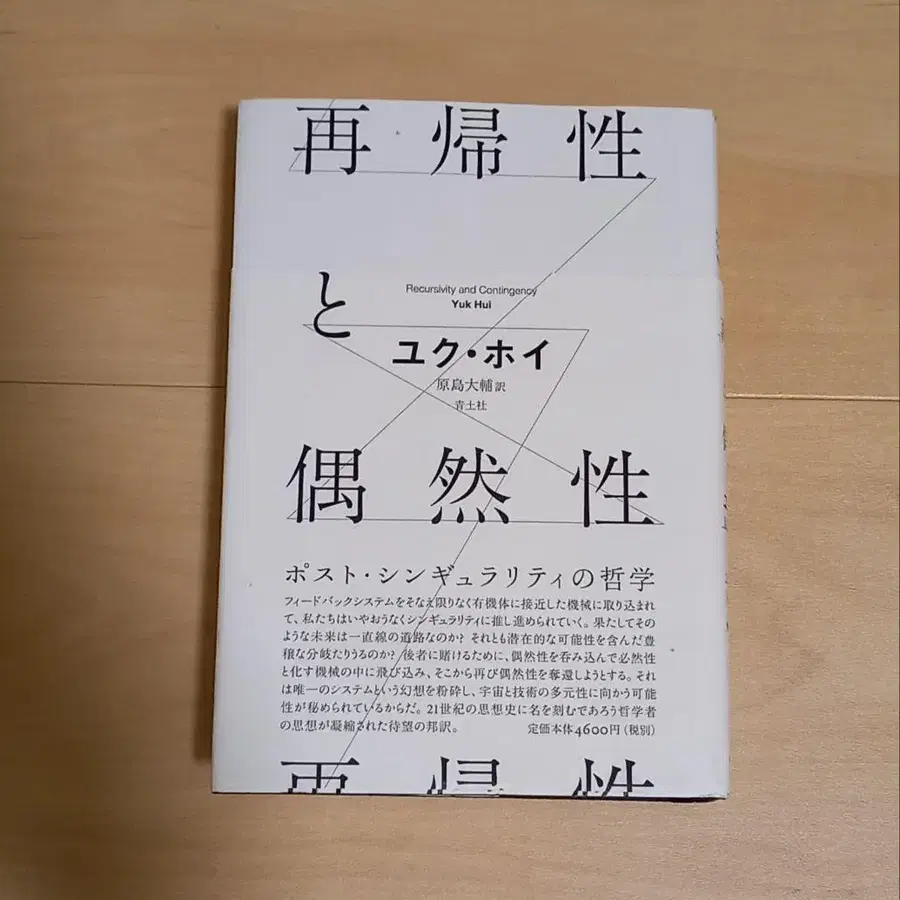 再帰性
と
Recursivity and Contingency
Yuk Hui
ユク・ホイ
原島大輔 訳
青土社
偶然性
ポスト・シンギュラリティの哲学
フィードバックシステムをそなえ限りなく有機体に接近した機械に取り込まれ
て、私たちはいやおうなくシンギュラリティに推し進められていく。果たしてその
ような未来は一直線の道路なのか? それとも潜在的な可能性を含んだ豊
穣な分岐たりうるのか? 後者に賭けるために、偶然性を呑み込んで必然性
と化す機械の中に飛び込み、そこから再び偶然性を奪還しようとする。それ
は唯一のシステムという幻想を粉砕し、宇宙と技術の多元性に向かう可能
性が秘められているからだ。21世紀の思想史に名を刻むであろう哲学者
の思想が凝縮された待望の邦訳。
定価本体4600円(税別)
再帰性